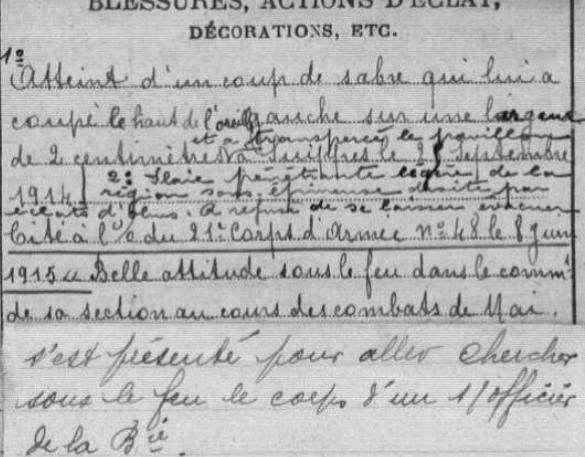 BLESSURES, ACTIONS D'ÉCLAT,
DÉCORATIONS, ETC.
1º
Atteint d'un coup de sabre qui lui a
coupé le haut de l'oreille gauche sur une largeur
et a transpercé le pavillon
de 2 centimètres à Suippes le 25 Septembre
1914. 2º Plaie pénétrante légère de la
région sous-épineuse droite par
éclats d'obus. A refusé de se laisser évacuer
Cité à l'O/ du 21e Corps d'Armée Nº 48 le 8 Juin
1915 "Belle attitude sous le feu dans le commt
de sa section au cours des combats de Mai.
s'est présenté pour aller chercher
sous le feu le corps d'un s/officier
de la Bie.